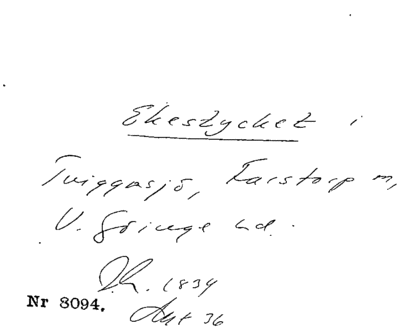 Ekestycket i
Tviggasjö, Farstorp m,
V. Göinge hd.
1834
Nr 8094. Akt 36